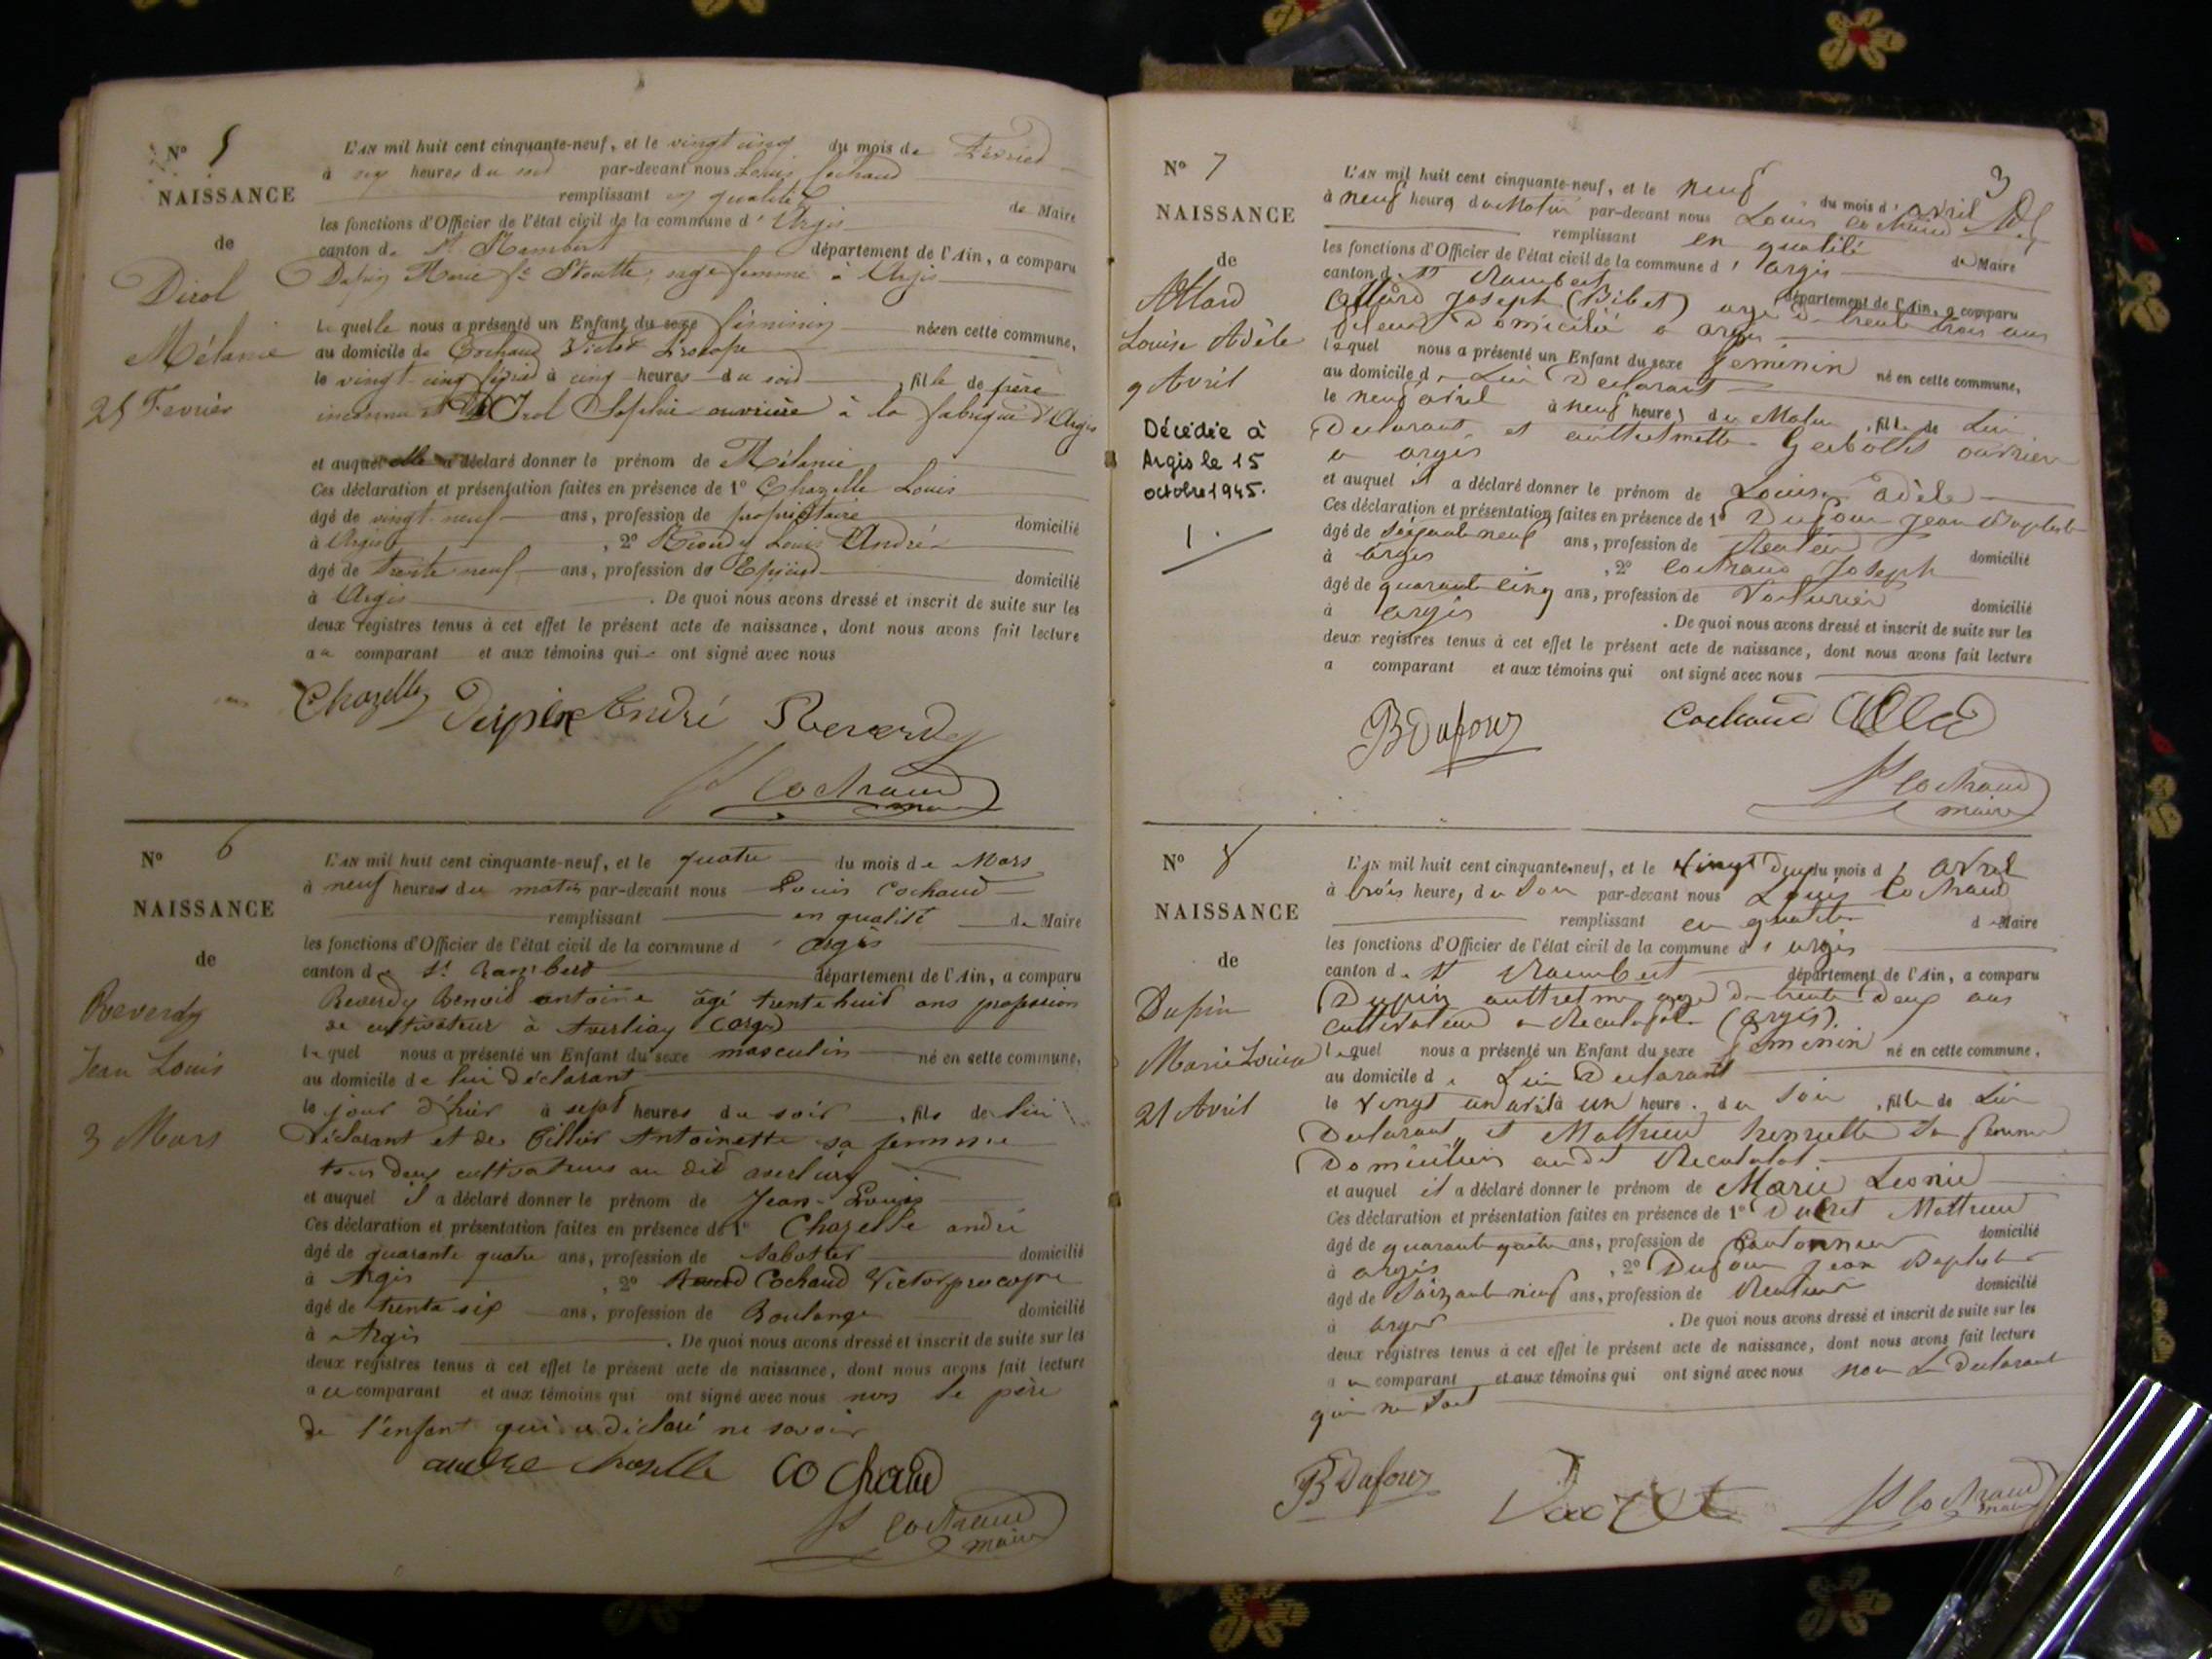 Nº 5
NAISSANCE
de
Dirol
Mélanie
25 Fevrier
L'AN mil huit cent cinquante-neuf, et le vingt cinq du mois de Février
à six heures du soir par-devant nous Louis Cochaud
remplissant en qualité de Maire
les fonctions d'Officier de l'état civil de la commune d'Argis
canton de St Rambert département de l'Ain, a comparu
Dupin Marie sage femme à Argis
Laquelle nous a présenté un Enfant du sexe féminin née en cette commune,
au domicile de Cochaud Victor Procope
le vingt-cinq février à cinq heures du soir, fille de père
inconnu et Dirol Sophie ouvrière à la fabrique d'Argis
et auquel elle a déclaré donner le prénom de Mélanie
Ces déclaration et présentation faites en présence de 1º Chazelle Louis
âgé de vingt-neuf ans, profession de propriétaire domicilié
à Argis, 2º Louis André
âgé de trente neuf ans, profession de Epicier domicilié
à Argis. De quoi nous avons dressé et inscrit de suite sur les
deux registres tenus à cet effet le présent acte de naissance, dont nous avons fait lecture
au comparant et aux témoins qui ont signé avec nous
Chazelle Dupin André Reverdy
L Cochaud
maire
Nº 6
NAISSANCE
de
Reverdy
Jean Louis
3 Mars
L'AN mil huit cent cinquante-neuf, et le quatre du mois de Mars
à neuf heures du matin par-devant nous Louis Cochaud
remplissant en qualité de Maire
les fonctions d'Officier de l'état civil de la commune d'argis
canton de St Rambert département de l'Ain, a comparu
Reverdy Benoid antoine âgé trente huit ans profession
de cultivateur à Averliay (argis)
lequel nous a présenté un Enfant du sexe masculin né en cette commune,
au domicile de lui déclarant
le jour d'hier à sept heures du soir, fils de lui
déclarant et de Tillier Antoinette sa femme
tous deux cultivateurs au dit
et auquel il a déclaré donner le prénom de Jean-Louis
Ces déclaration et présentation faites en présence de 1º Chazelle andré
âgé de quarante quatre ans, profession de sabotier domicilié
à Argis, 2º Cochaud Victor procope
âgé de trente six ans, profession de Boulanger domicilié
à Argis. De quoi nous avons dressé et inscrit de suite sur les
deux registres tenus à cet effet le présent acte de naissance, dont nous avons fait lecture
au comparant et aux témoins qui ont signé avec nous non le père
de l'enfant qui a déclaré ne savoir
andré chazelle Cochaud
L Cochaud
maire
3
Nº 7
NAISSANCE
de
Allard
Louise Adèle
9 Avril
Décédée à
Argis le 15
octobre 1945.
L'AN mil huit cent cinquante-neuf, et le neuf du mois d'avril
à neuf heures du Matin par-devant nous Louis Cochaud
remplissant en qualité de Maire
les fonctions d'Officier de l'état civil de la commune d'argis
canton de St Rambert département de l'Ain, a comparu
Allard Joseph (Bibet) agé de trente trois ans
fileur domicilié a argis
lequel nous a présenté un Enfant du sexe feminin né en cette commune,
au domicile de Lui Declarant
le neuf avril à neuf heures du Matin, fille de Lui
Declarant et anthelmette Gerbollet ouvrière
a argis
et auquel il a déclaré donner le prénom de Louise adèle
Ces déclaration et présentation faites en présence de 1º Dufour Jean Baptiste
âgé de soixante neuf ans, profession de Rentier domicilié
à argis, 2º Cochaud Joseph
âgé de quarante cinq ans, profession de Voiturier domicilié
à argis. De quoi nous avons dressé et inscrit de suite sur les
deux registres tenus à cet effet le présent acte de naissance, dont nous avons fait lecture
a comparant et aux témoins qui ont signé avec nous
B Dufour Cochaud Allard
L Cochaud
maire
Nº 8
NAISSANCE
de
Dupin
Marie Louise
21 Avril
L'AN mil huit cent cinquante-neuf, et le vingt deux du mois d'avril
à trois heures du soir par-devant nous Louis Cochaud
remplissant en qualité de Maire
les fonctions d'Officier de l'état civil de la commune d'argis
canton de St Rambert département de l'Ain, a comparu
Dupin anthelme agé de trente deux ans
cultivateur a Reculafol (argis).
lequel nous a présenté un Enfant du sexe feminin né en cette commune,
au domicile de Lui Declarant
le vingt un avril à un heure du soir, fille de Lui
Declarant et Mathieu henriette sa femme
Domiciliés au dit Reculafol
et auquel il a déclaré donner le prénom de Marie Leonie
Ces déclaration et présentation faites en présence de 1º Ducret Mathieu
âgé de quarante quatre ans, profession de Cantonnier domicilié
à argis, 2º Dufour Jean Baptiste
âgé de soixante neuf ans, profession de Rentier domicilié
à argis. De quoi nous avons dressé et inscrit de suite sur les
deux registres tenus à cet effet le présent acte de naissance, dont nous avons fait lecture
au comparant et aux témoins qui ont signé avec nous non Le Declarant
qui ne sait
B Dufour
L Cochaud
maire